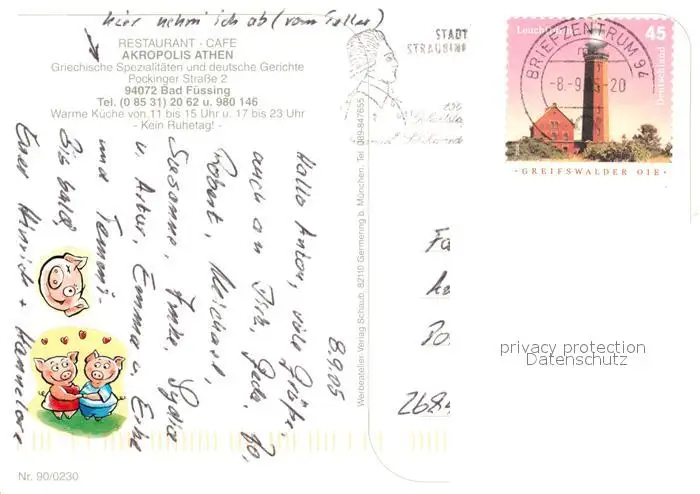 hier nehm ich ab (vom Teller)
RESTAURANT - CAFE
AKROPOLIS ATHEN
Griechische Spezialitäten und deutsche Gerichte
Pockinger Straße 2
94072 Bad Füssing
Tel. (0 85 31) 20 62 u. 980 146
Warme Küche von 11 bis 15 Uhr u. 17 bis 23 Uhr
- Kein Ruhetag! -
8.9.05
Hallo Anton, viele Grüße,
auch an Dich, Gerda, Bo,
Robert, Michael,
Susanne, Imke, Lydia
u. Artur, Emma u. Erhe
und Tammi.
Bis bald,
Euer Hinrich + Hannelore
Nr. 90/0230
Werbeatelier Verlag Schaub, 82110 Germering b. München, Tel. 089-847655
STADT
STRAUBING
BRIEFZENTRUM 94
-8.-9.05-20
Leuchttürme
45
Deutschland
·GREIFSWALDER OIE·
Fa
Po
268
privacy protection
Datenschutz